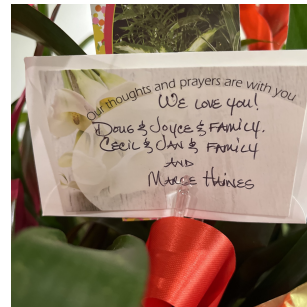 Our thoughts and prayers are with you.
We love you!
Doug & Joyce & Family.
Cecil & Jan & Family
and
Marge Haines